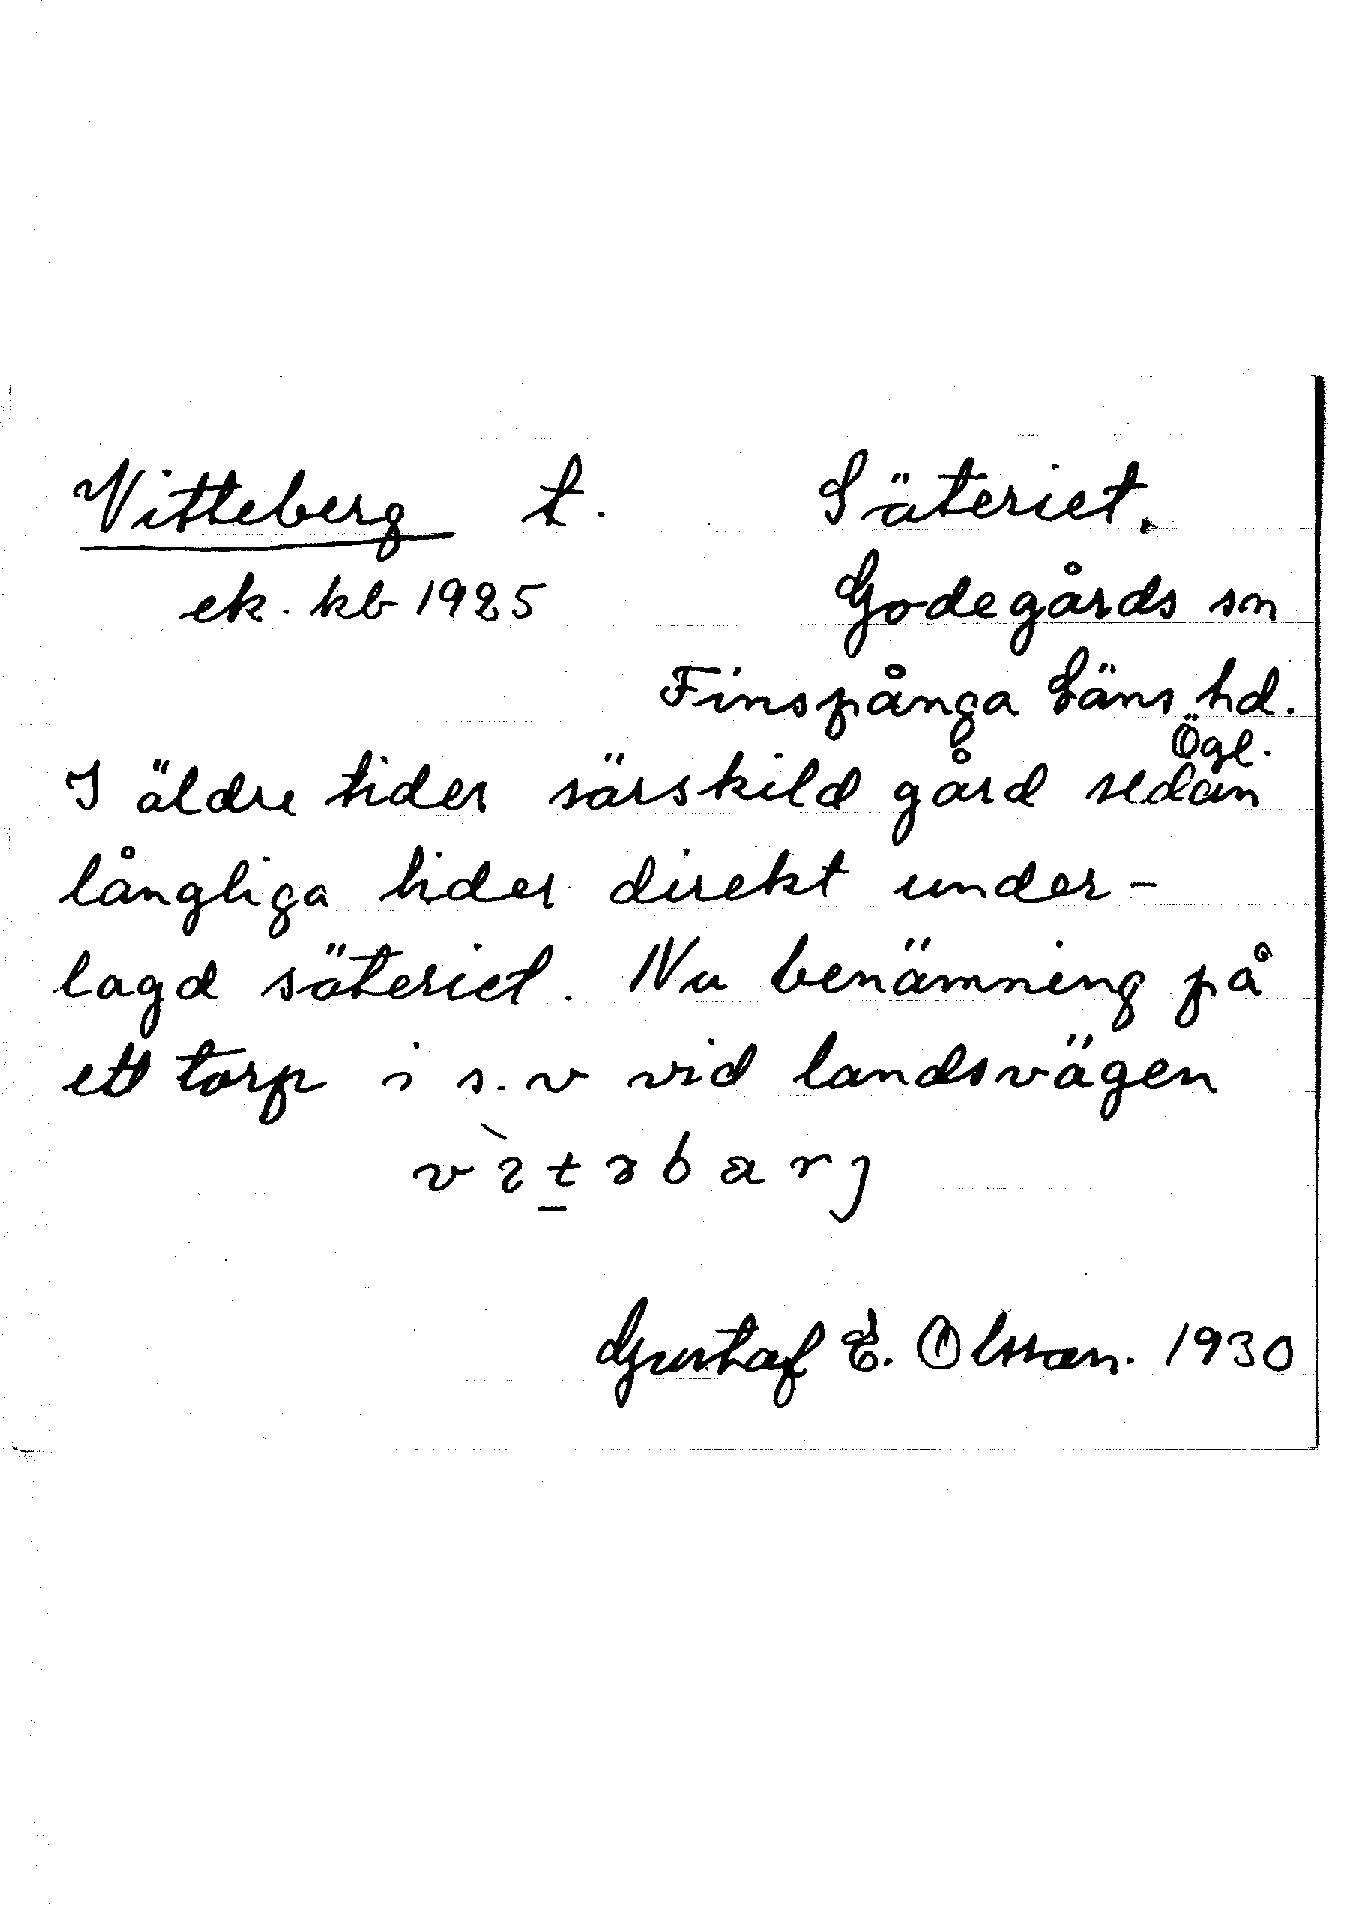 Vitteberg t. Säteriet.
ek. kb 1925 Godegårds sn
Finspånga Läns hd.
Ögl.
I äldre tider särskild gård sedan
långliga tider direkt under-
lagd säteriet. Nu benämning på
ett torp i s.v vid landsvägen
Gustaf E. Olsson. 1930